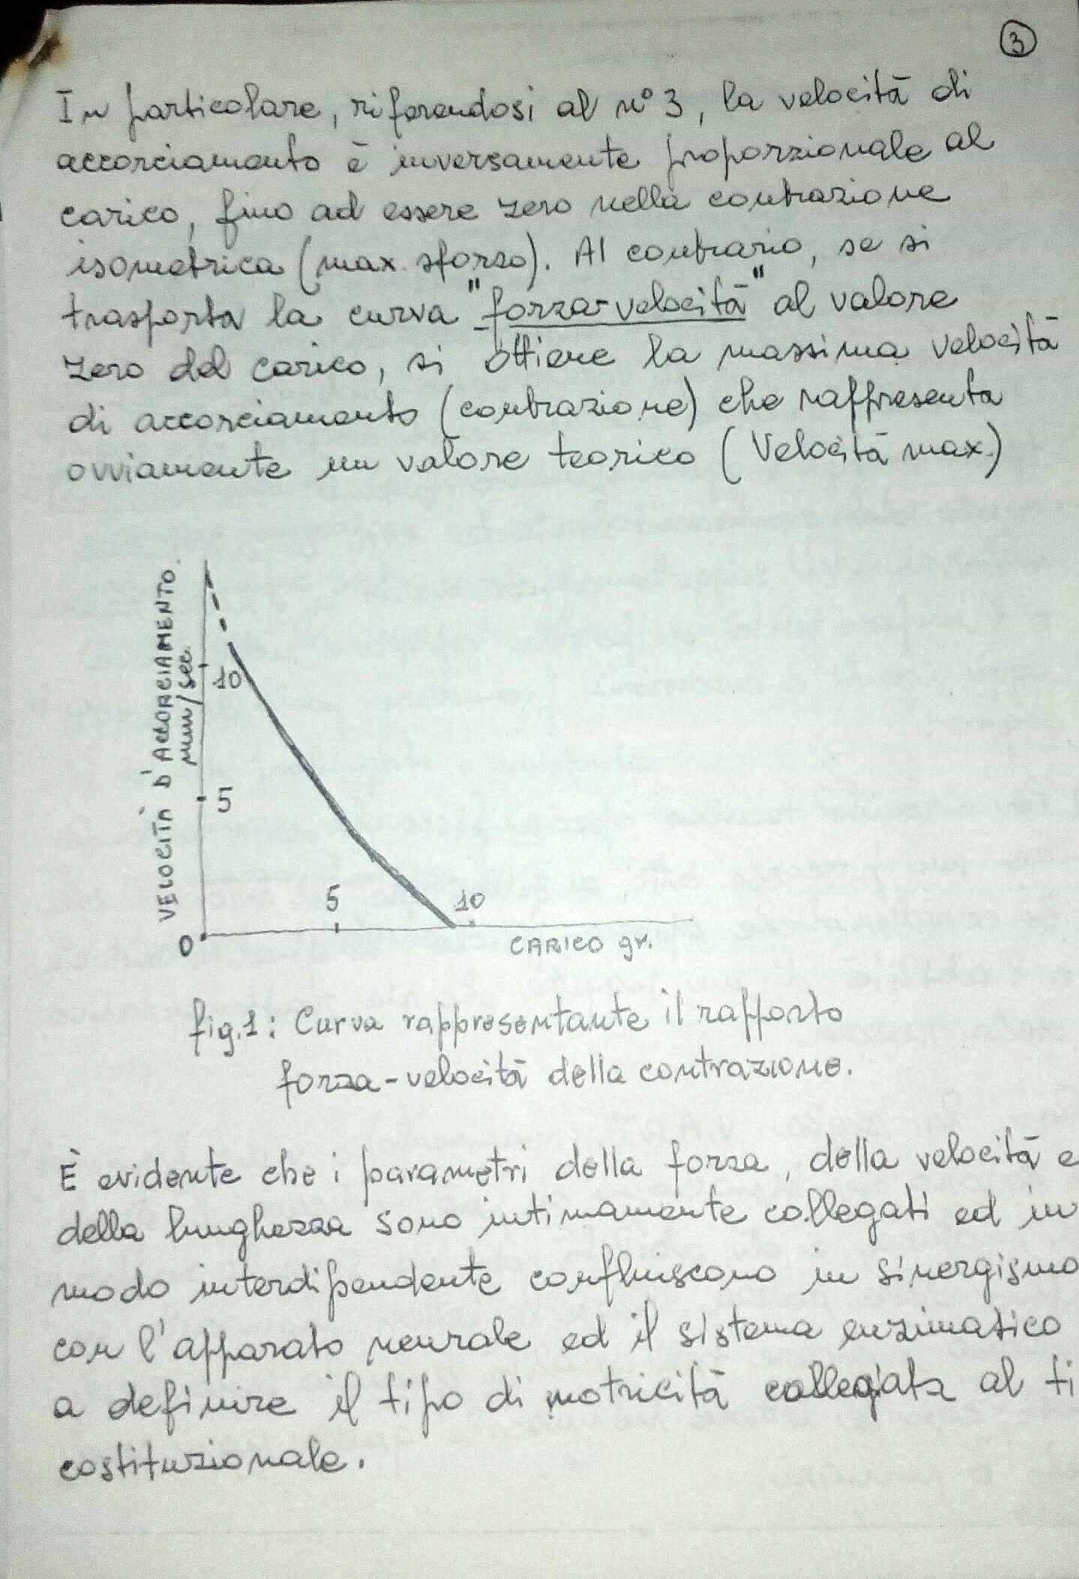 3
In particolare, riferendosi al n° 3, la velocità di
accorciamento è inversamente proporzionale al
carico, fino ad essere zero nella contrazione
isometrica (max. sforzo). Al contrario, se si
trasporta la curva "forza-velocità" al valore
zero del carico, si ottiene la massima velocità
di accorciamento (contrazione) che raffresenta
ovviamente un valore teorico (Velocità max.)
VELOCITÀ D'ACCORCIAMENTO.
mm/sec.
10
5
5
10
0
CARICO gr.
fig.1: Curva rappresentante il rapporto
forza-velocità della contrazione.
È evidente che i parametri della forza, della velocità e
della lunghezza sono intimamente collegati ed in
modo interdipendente confluiscono in sinergismo
con l'apparato neurale ed il sistema enzimatico
a definire il tipo di motricità collegata al ti
costituzionale.